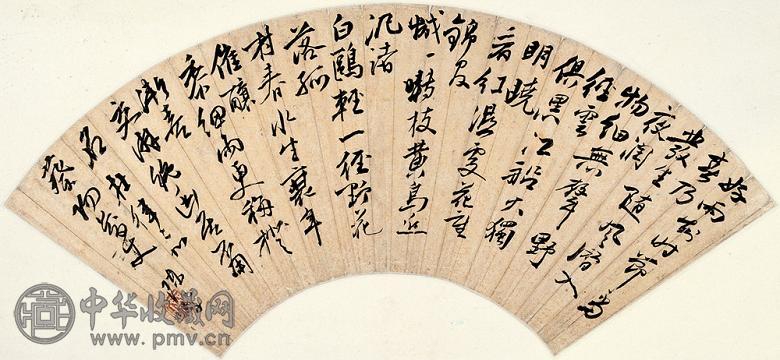 好雨
知時節當
春乃
發生隨風潛入
夜潤
物細無聲野
徑雲
俱黑江船火獨
明曉
看紅濕處花重
錦官
城一囀枝黃鳥近
汎渚
白鷗輕一徑野花
落孤
村春水生衰年
催釀
黍細雨更移橙
漸喜
交游絕幽居不用
名
杜律
中华收藏网
www.pmv.cn